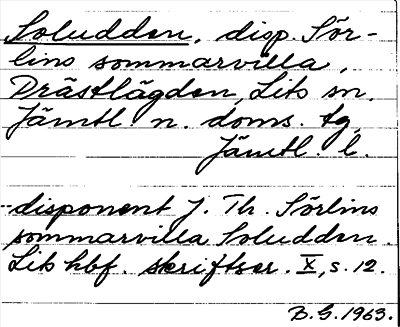 Soludden, disp. Sör-
lins sommarvilla,
Prästlägden, Lits sn.
Jämtl. n. doms. tg,
Jämtl. l.
--disponent J. Th. Sörlins
sommarvilla Soludden.
Lits hbf. skriftser. X, s. 12.
B. G. 1963.